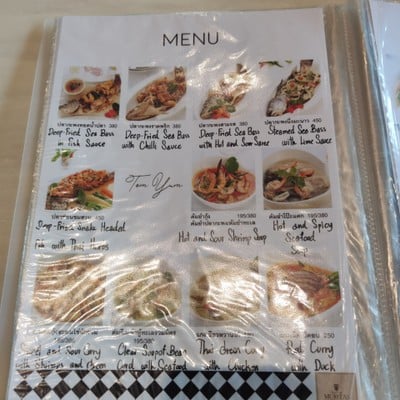 MENU
ปลากะพงทอดน้ำปลา 380
Deep-Fried Sea Bass
in Fish Sauce
ปลากะพงราดพริก 380
Deep-Fried Sea Bass
with Chilli Sauce
ปลากะพงสามรส 380
Deep-Fried Sea Bass
with Hot and Sour Sauce
ปลากะพงนึ่งมะนาว 450
Steamed Sea Bass
with Lime Sauce
450
Deep-Fried Snake Headed
Fish with Thai Herbs
Tom Yum
ต้มยำกุ้ง 195/380
Hot and Sour Shrimp Soup
ต้มยำโป๊ะแตก 195/380
Hot and Spicy
Seafood
Soup
and Sour Curry
with Shrimps and
195/380
Clear Soup of Bean
Curd with Seafood
Thai Green Curry
with Chicken
250
Red Curry
with Duck